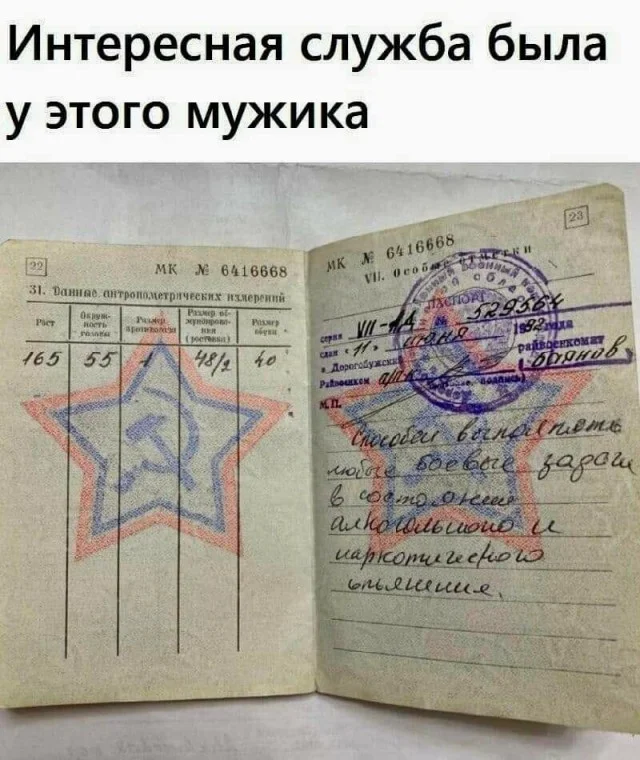 Интересная служба была
у этого мужика
22
МК № 6416668
31. Данные антропометрических измерений
Рост
Окруж-
ность
головы
Размер
противогаза
Размер об-
мундирова-
ния
(ростовка)
Размер
обуви
165 55 1 48/2 40
23
МК № 6416668
VII. Особые отметки
ПАСПОРТ
серия VII-
529564
"11" июня 1982 года
г. Дорогобужским райвоенкомат
М.П.
Способен выполнять
любые боевые задачи
в состоянии
алкогольного и
наркотического
опьянения.